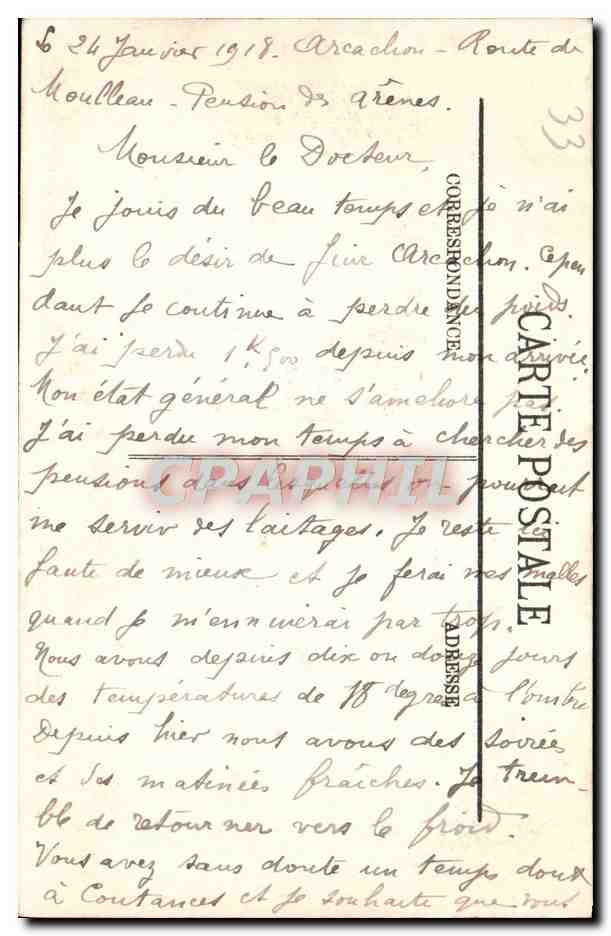 Le 24 Janvier 1918. Arcachon - Route de
Moulleau - Pension des Arènes.
33
Monsieur le Docteur,
Je jouis du beau temps et je n'ai
plus le désir de fuir Arcachon. Cepen
dant je continue à perdre du poids.
J'ai perdu 1K,500 depuis mon arrivée.
Mon état général ne s'améliore pas.
J'ai perdu mon temps à chercher des
pensions dans lesquelles on pourrait
me servir des laitages. Je reste ici
faute de mieux et je ferai mes malles
quand je m'ennuierai par trop.
Nous avons depuis dix ou douze jours
des températures de 18 degrés à l'ombre
Depuis hier nous avons des soirées
et des matinées fraîches. Je trem-
ble de retourner vers le froid.
Vous avez sans doute un temps doux
à Coutances et je souhaite que vous
CORRESPONDANCE
ADRESSE
CARTE POSTALE
CPAPHIL